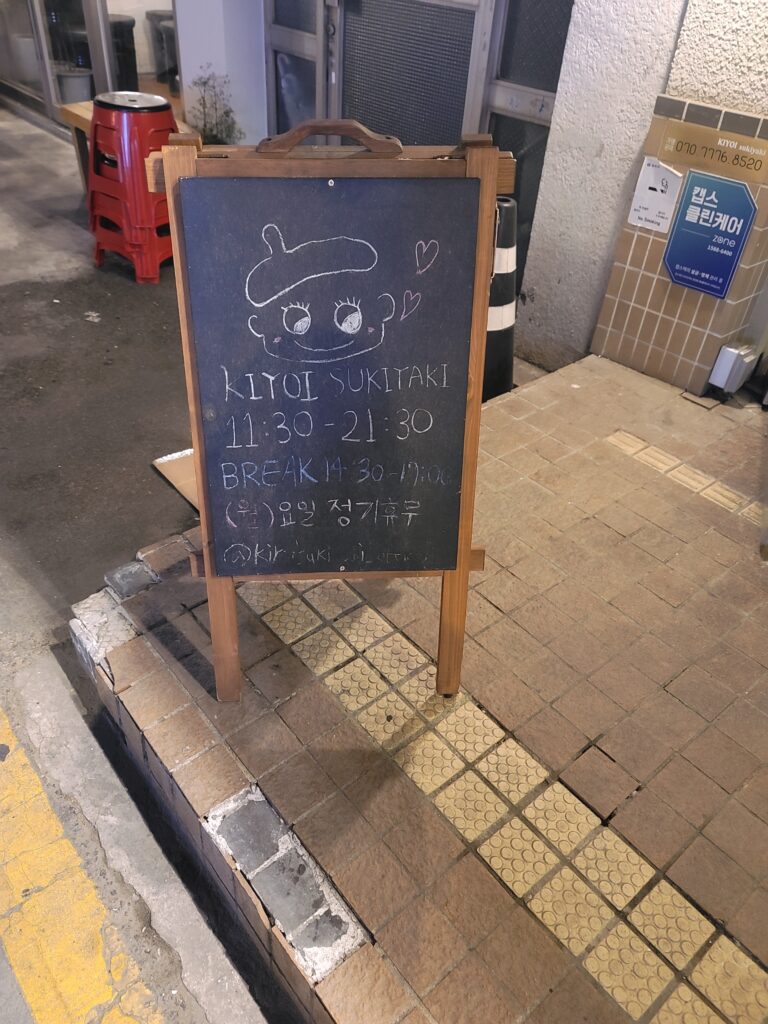 KIYOI SUKIYAKI
11:30 - 21:30
BREAK 14:30-17:00
(월)요일 정기휴무
KIYOI sukiyaki
070.7776.8520
No Smoking
캡스
클린케어
zone
1588-6400